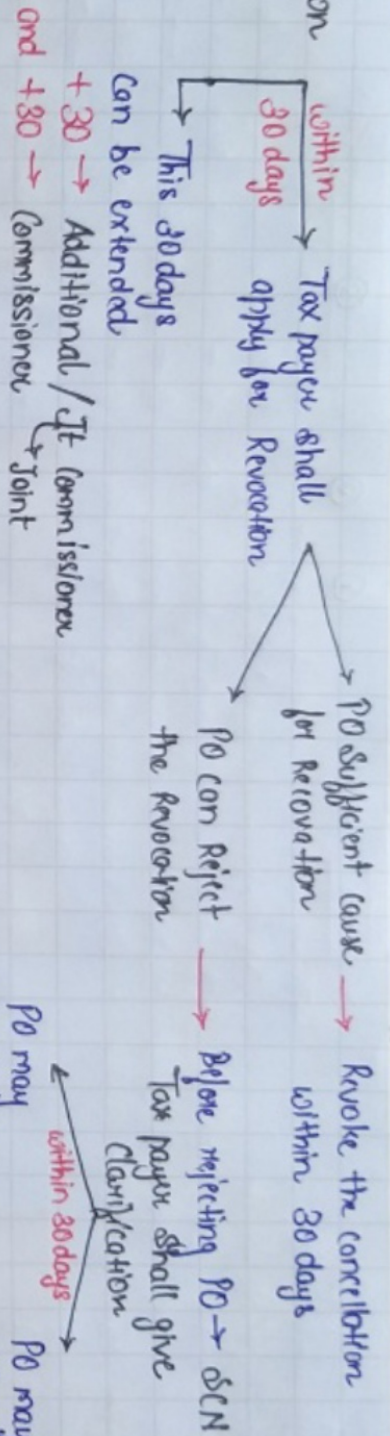 on
within
30 days
Tax payer shall
apply for Revocation
This 30 days
can be extended
+ 30 → Additional / Jt Commissioner
and +30 → Commissioner Joint
PO Sufficient cause
for Recovation
→ Revoke the cancellation
within 30 days
PO can Reject
the Revocation
→ Before rejecting PO → SCN
Tax payer shall give
Clarification
within 30 days
PO may
PO may